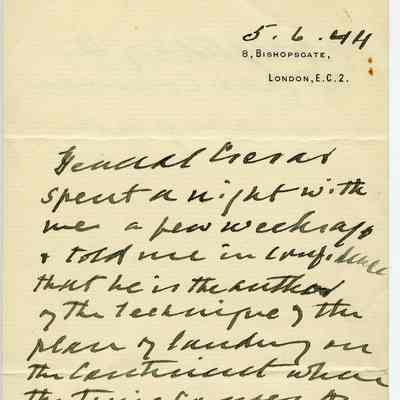 5.6.44
8, BISHOPSGATE,
LONDON, E.C.2.
General Crerar
spent a night with
me a few weeks ago
& told me in confidence
that he is the author
of the technique of the
plan of landing on
the Continent when
the time comes